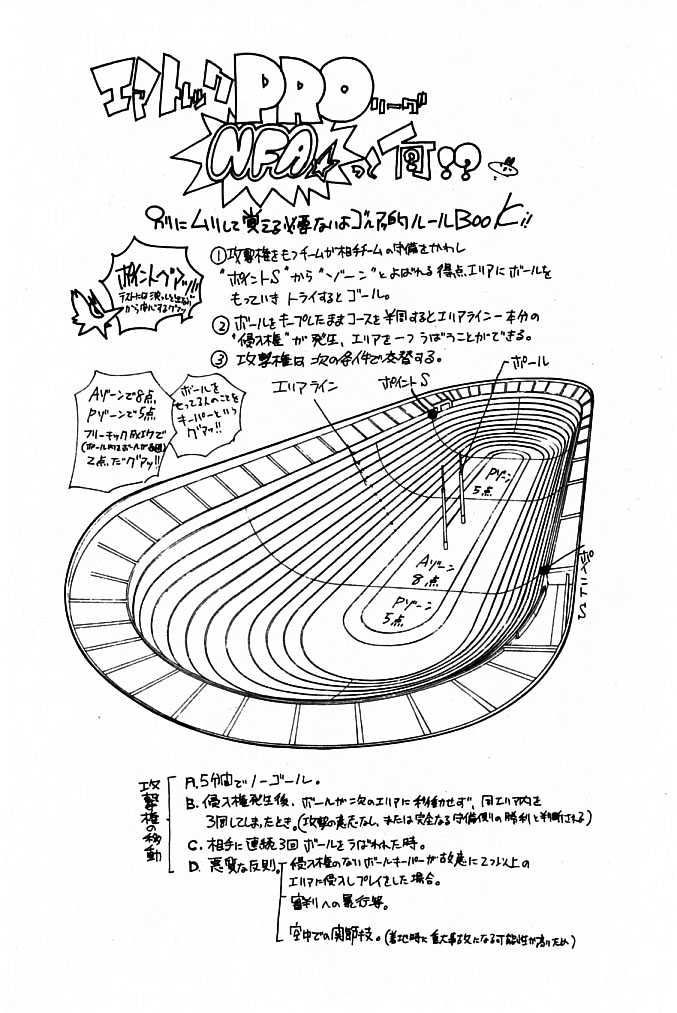 エアトレックPROリーグ
NFA☆って何!?
別にムリして覚える必要ないよゴーグル的ルールBOOK!!
ポイントグアッ!!
①攻撃権をもつチームが相手チームの守備をかわし
"ポイントS"から"ゾーン"とよばれる得点エリアにボールを
もっていきトライするとゴール。
②ボールをキープしたままコースを半周するとエリアライン一本分の
"侵入権"が発生、エリアを一つうばうことができる。
③攻撃権は次の条件で交替する。
Aゾーンで8点
Pゾーンで5点
フリーキック成功で
2点、だグアッ!!
ボールを
もってる人のことを
キーパーという
グアッ!!
エリアライン
ポイントS
ポール
Pゾーン
5点
Aゾーン
8点
Pゾーン
5点
ポイントS
攻撃権の移動
A.5分間でノーゴール。
B.侵入権発生後、ボールが次のエリアに移動せず、同エリア内を
3回してしまったとき。(攻撃の意志なし、または完全なる守備側の勝利と判断される)
C.相手に連続3回ボールをうばわれた時。
D.悪質な反則。
侵入権のないボールキーパーが故意に2つ以上の
エリアに侵入しプレイをした場合。
審判への暴行等。
空中での関節技。(着地時に重大事故になる可能性が高いため)